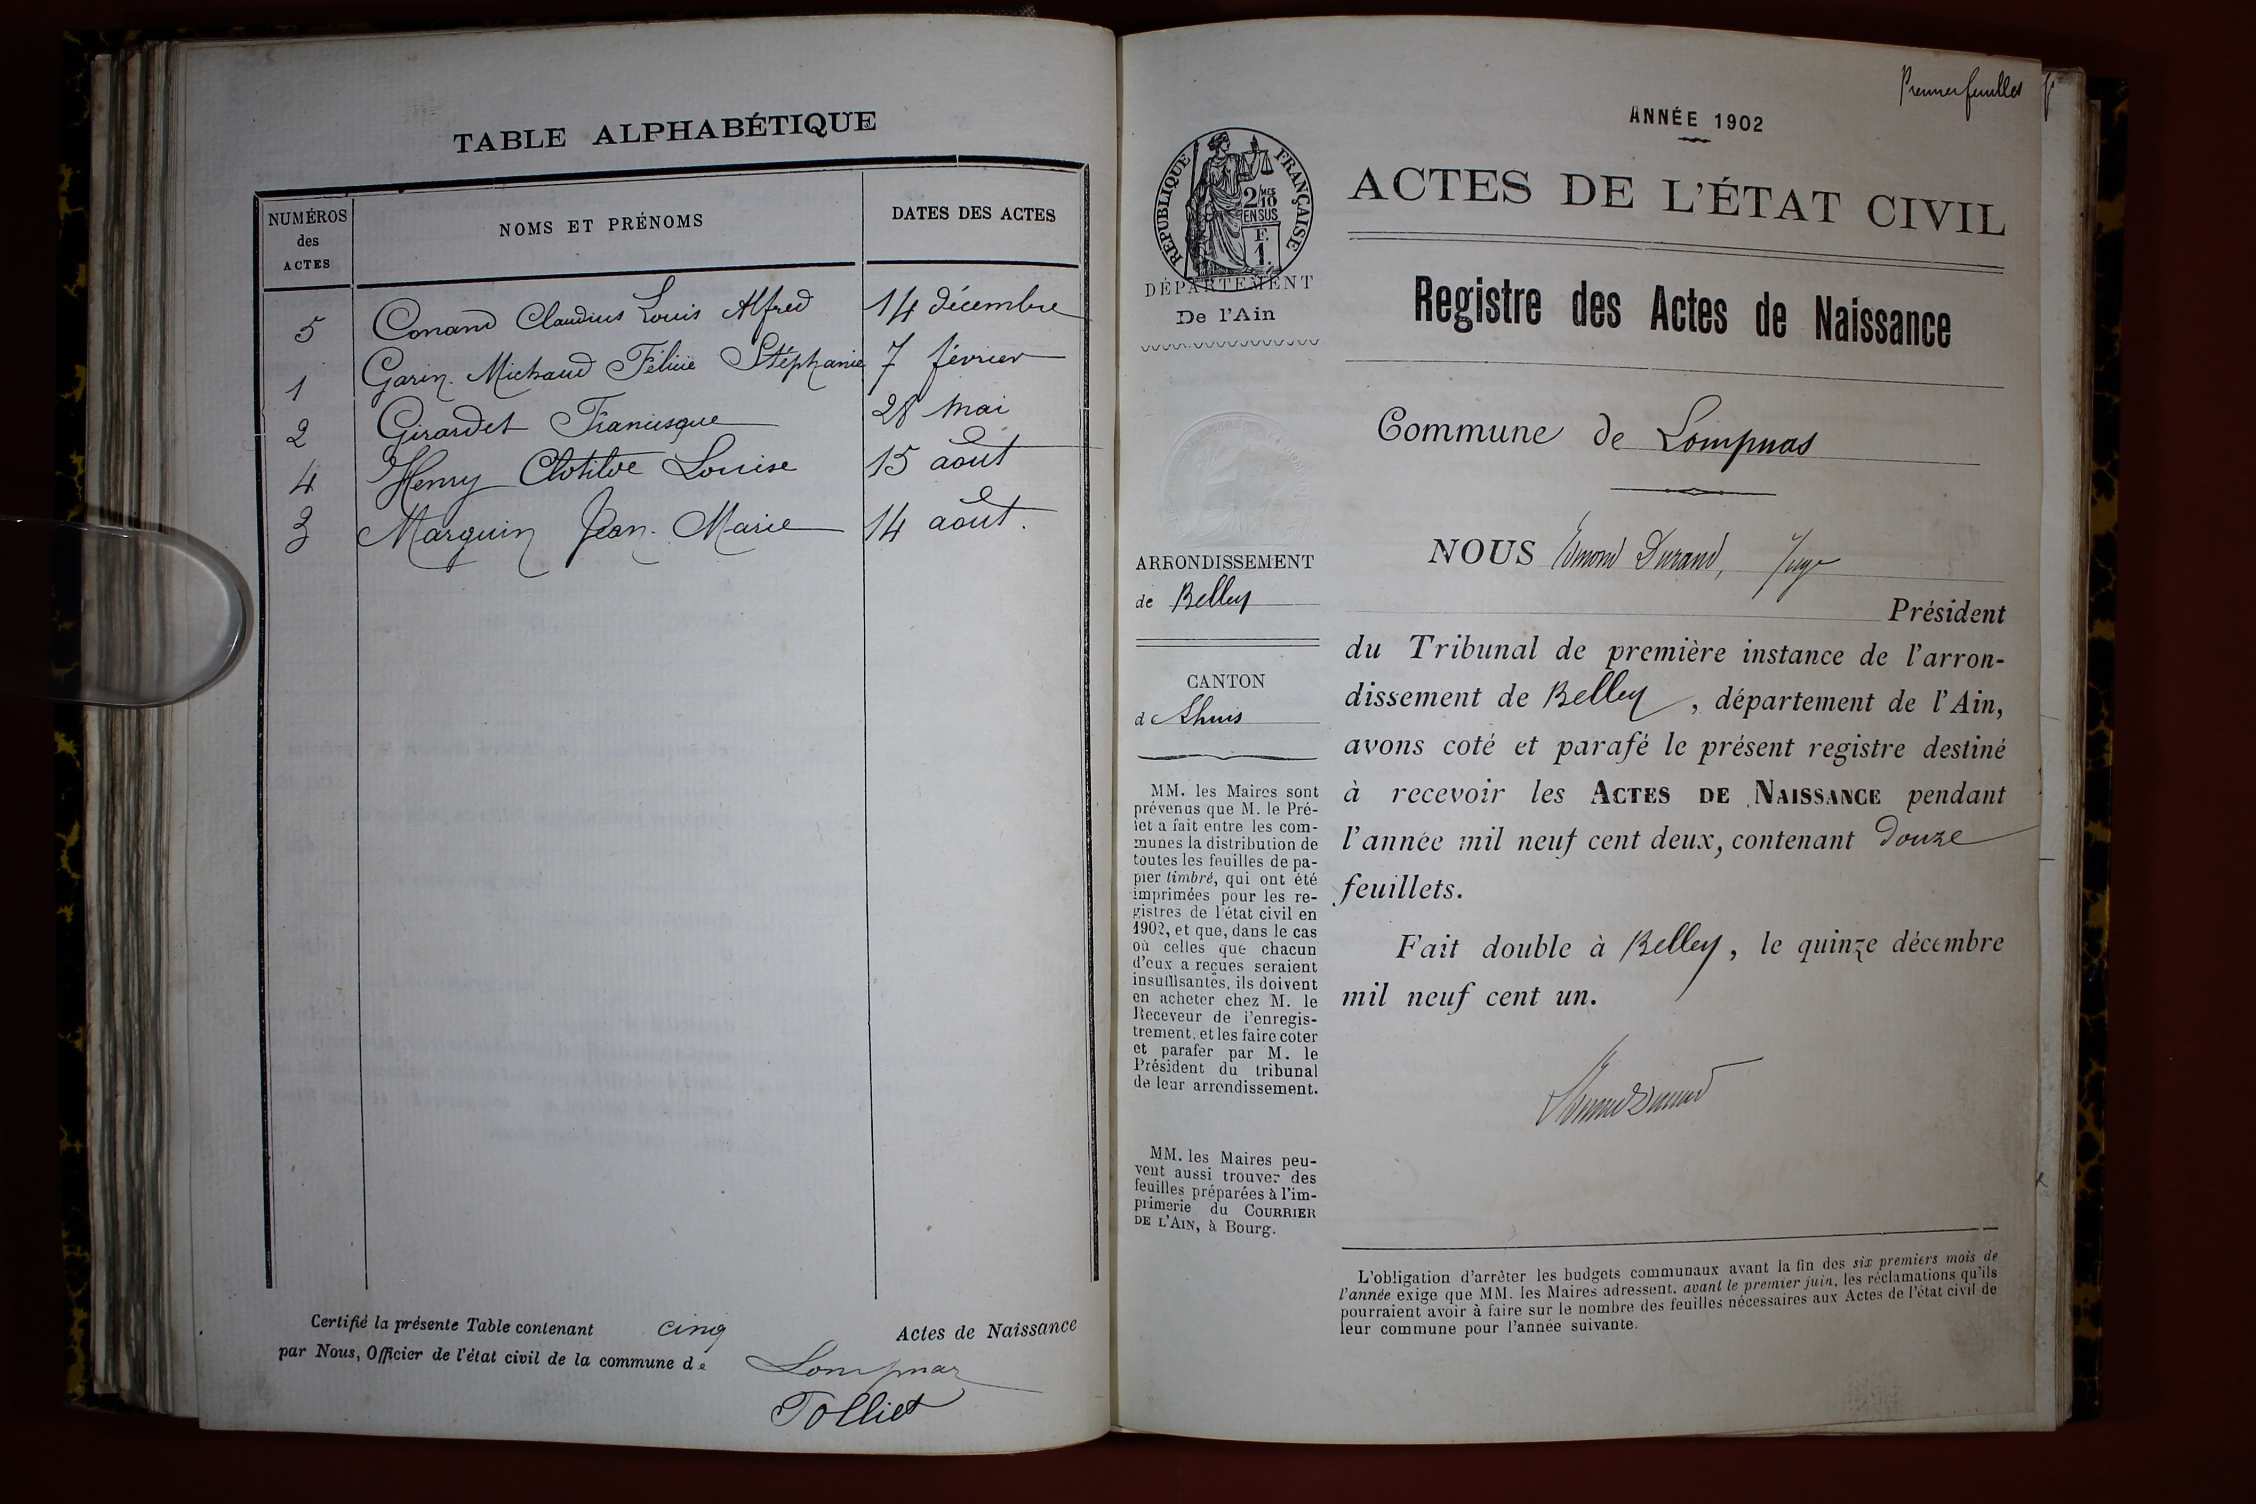 TABLE ALPHABÉTIQUE
NUMÉROS des ACTES
NOMS ET PRÉNOMS
DATES DES ACTES
5 Conand Claudius Louis Alfred 14 décembre
1 Garin-Michaud Félicie Stéphanie 7 février
2 Girardet Francisque 28 mai
4 Henry Clotilde Louise 15 août
3 Marquin Jean-Marie 14 août.
Certifié la présente Table contenant cinq Actes de Naissance
par Nous, Officier de l'état civil de la commune de Lompnaz
Tolliet
Premier feuillet
ANNÉE 1902
RÉPUBLIQUE FRANÇAISE
2/10 MES
EN SUS
F.
1.
DÉPARTEMENT
De l'Ain
ARRONDISSEMENT
de Belley
CANTON
de Lhuis
MM. les Maires sont
prévenus que M. le Pré-
fet a fait entre les com-
munes la distribution de
toutes les feuilles de pa-
pier timbré, qui ont été
imprimées pour les re-
gistres de l'état civil en
1902, et que, dans le cas
où celles que chacun
d'eux a reçues seraient
insuffisantes, ils doivent
en acheter chez M. le
Receveur de l'enregis-
trement, et les faire coter
et parafer par M. le
Président du tribunal
de leur arrondissement.
MM. les Maires peu-
vent aussi trouver des
feuilles préparées à l'im-
primerie du COURRIER
DE L'AIN, à Bourg.
ACTES DE L'ÉTAT CIVIL
Registre des Actes de Naissance
Commune de Lompnas
NOUS Edmond Durand, Juge
Président
du Tribunal de première instance de l'arron-
dissement de Belley, département de l'Ain,
avons coté et parafé le présent registre destiné
à recevoir les ACTES DE NAISSANCE pendant
l'année mil neuf cent deux, contenant douze
feuillets.
Fait double à Belley, le quinze décembre
mil neuf cent un.
L'obligation d'arrêter les budgets communaux avant la fin des six premiers mois de
l'année exige que MM. les Maires adressent, avant le premier juin, les réclamations qu'ils
pourraient avoir à faire sur le nombre des feuilles nécessaires aux Actes de l'état civil de
leur commune pour l'année suivante.